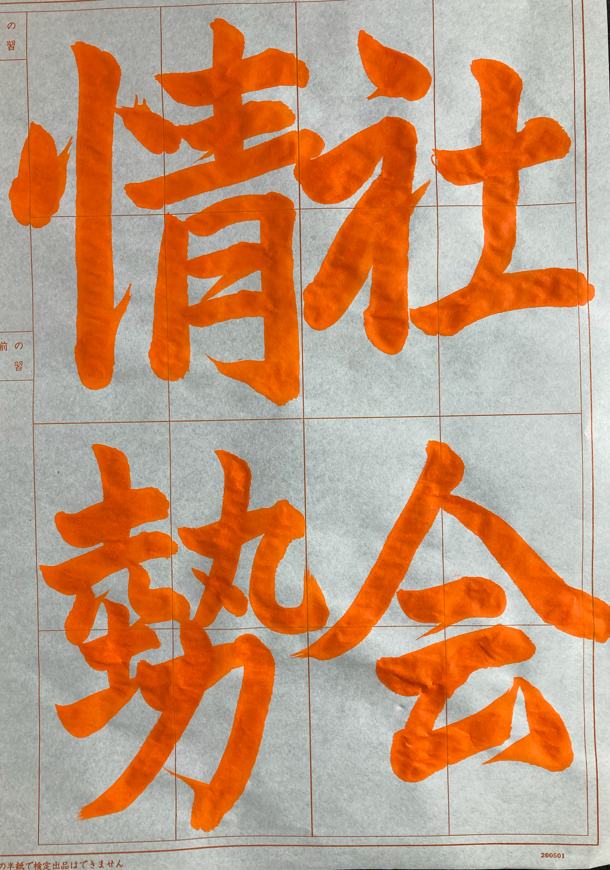 社会
情勢
の習
の習
前
の半紙で検定出品はできません
200501